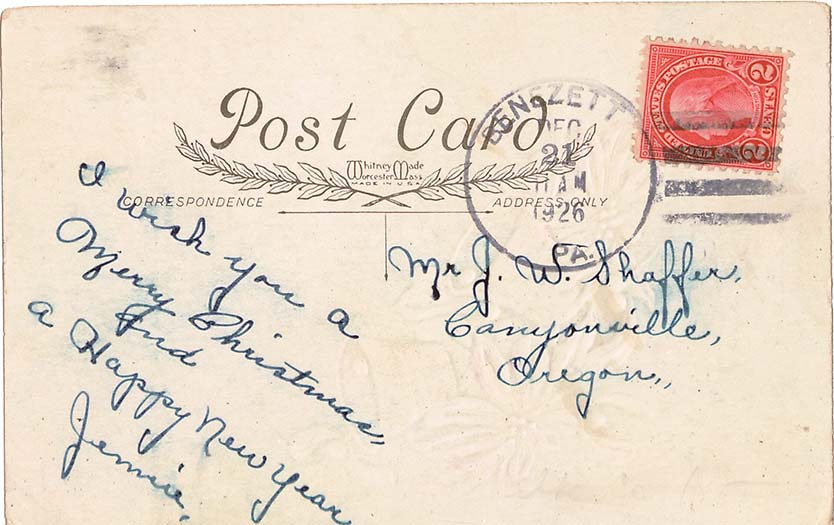 Post Card
Whitney Made
Worcester Mass
MADE IN U.S.A.
CORRESPONDENCE
ADDRESS ONLY
BENEZETT
DEC
21
11 AM
1926
PA.
STATES POSTAGE
2
CENTS
2
I wish you a
Merry Christmas,
And
a Happy New Year
Jennie,
Mr J. W. Shaffer,
Canyonville,
Oregon,,